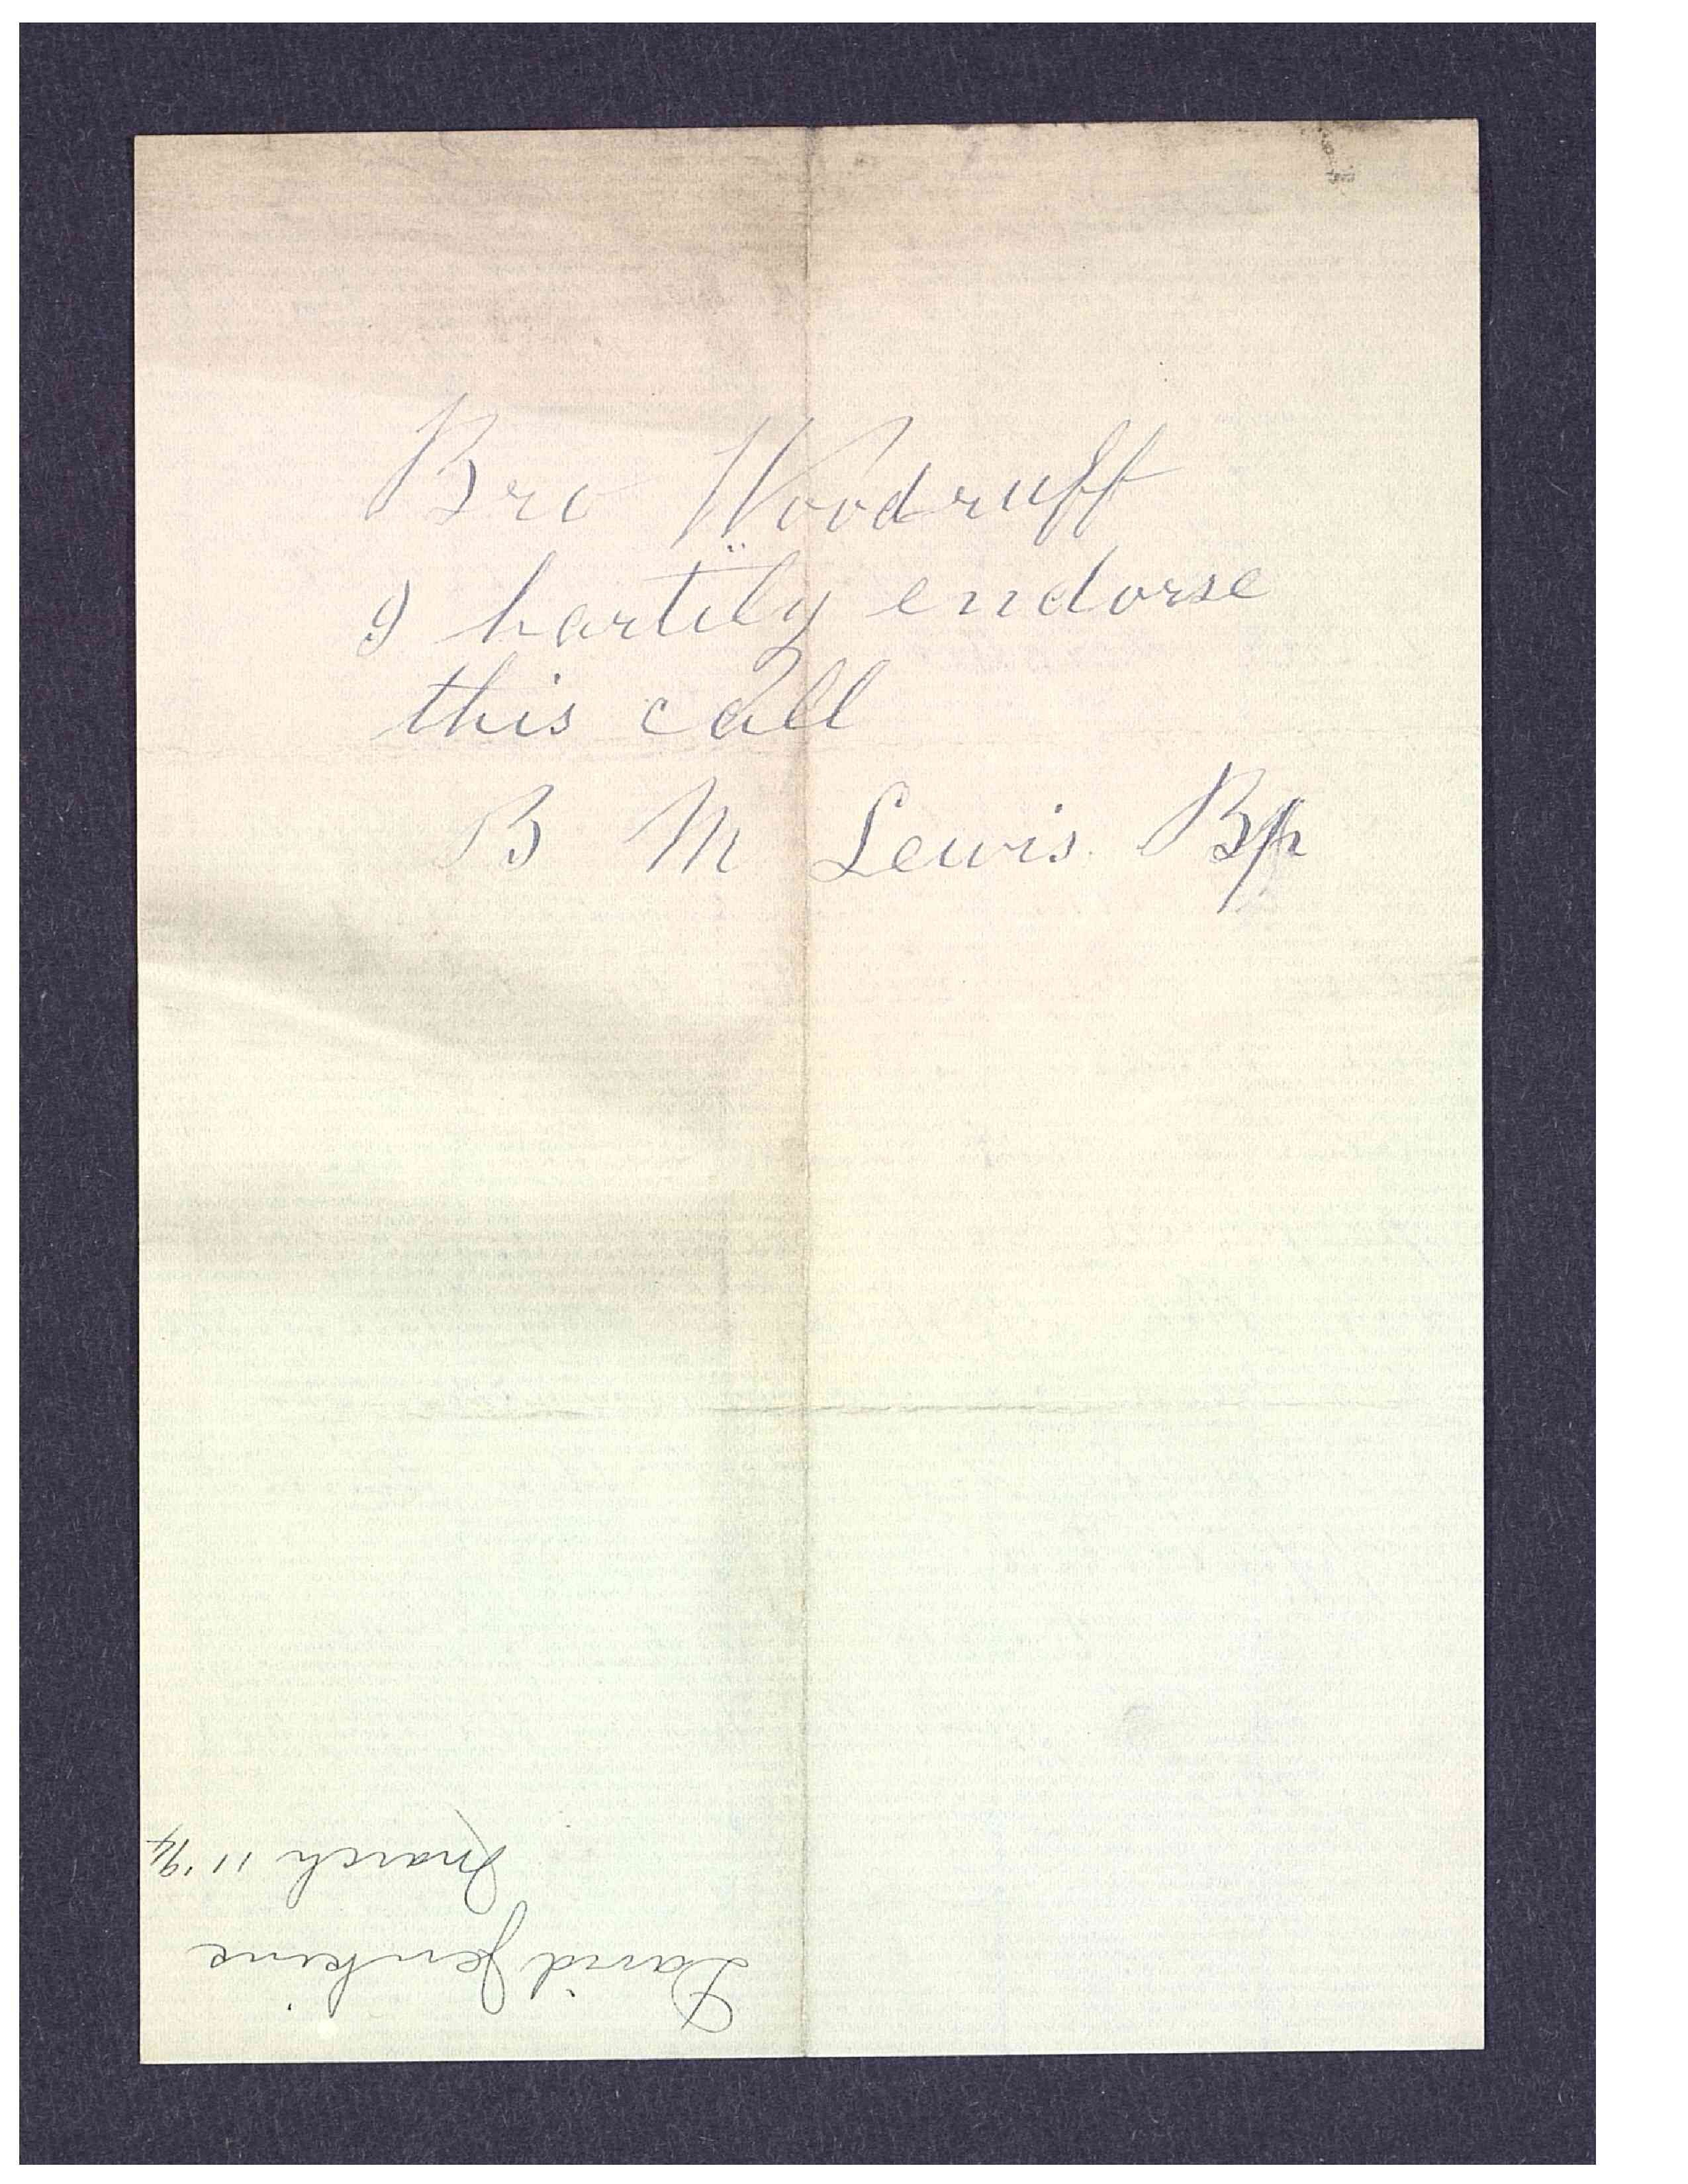 Bro Woodruff
I hartily endorse
this call
B M Lewis Bp
David Jenkins
March 11 '94